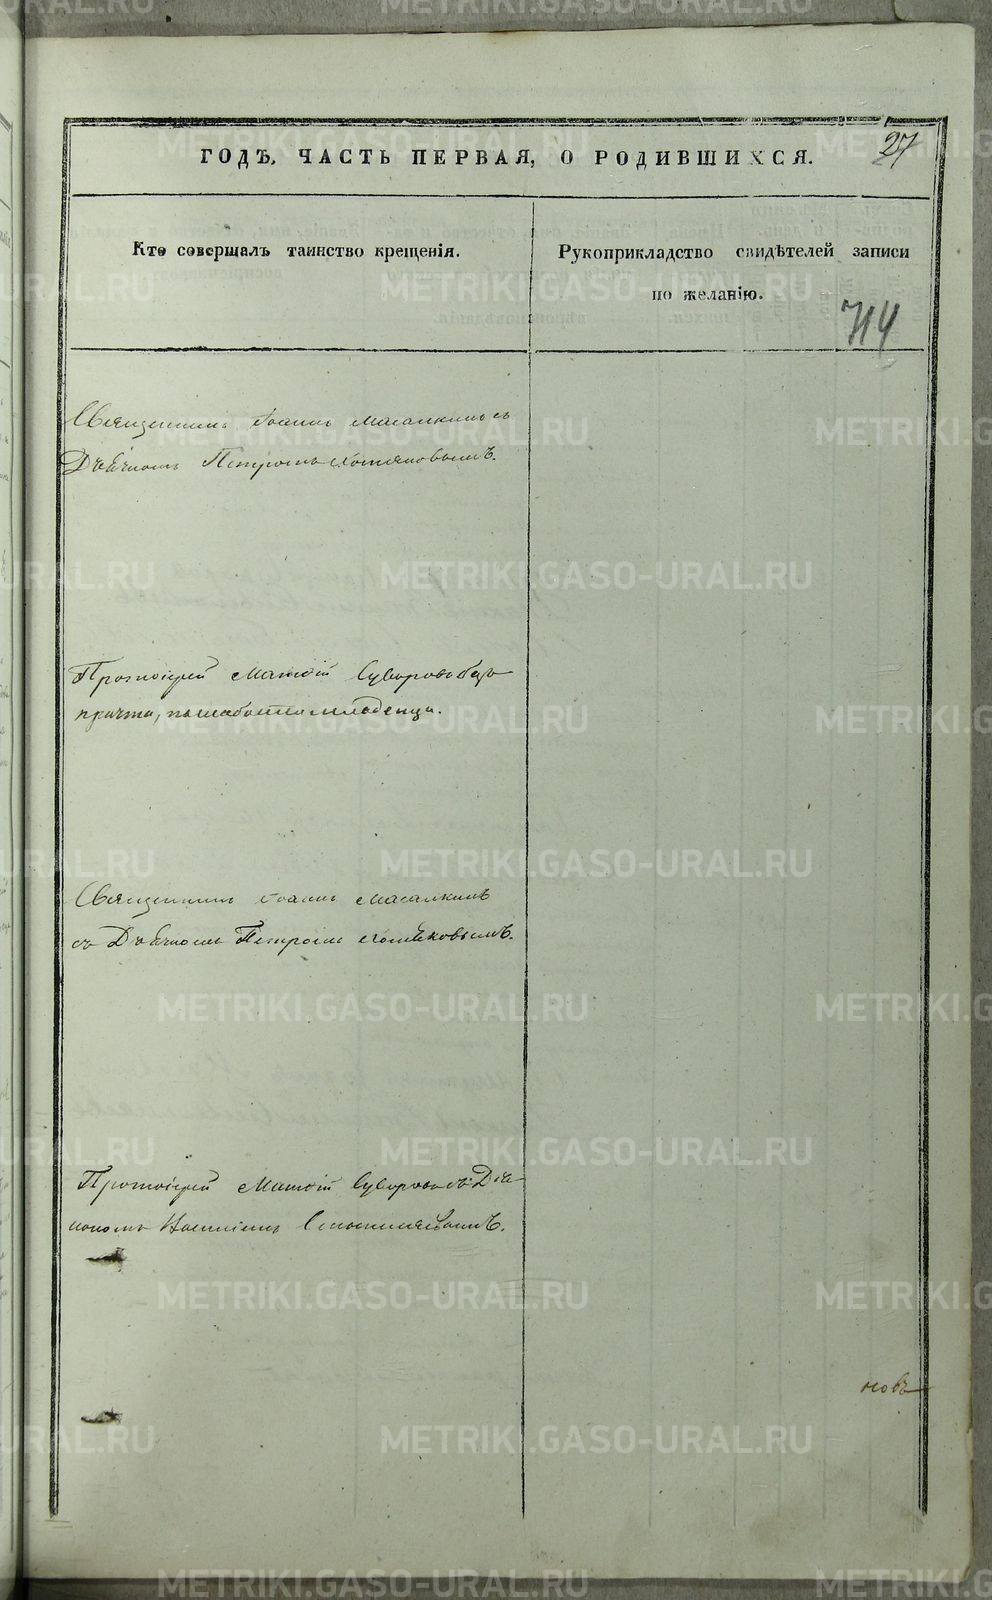 ГОДЪ, ЧАСТЬ ПЕРВАЯ, О РОДИВШИХСЯ.
27
Кто совершалъ таинство крещенія.
Рукоприкладство свидѣтелей записи
по желанію.
714
Священникъ Іоаннъ Масалкинъ съ
Дьячкомъ Петромъ Хомяковымъ.
Протоіерей Матѳій Суворовъ безъ
причта, по слабости младенца.
Священникъ Іоаннъ Масалкинъ
съ Дьячкомъ Петромъ Хомяковымъ.
Протоіерей Матѳій Суворовъ съ Діа-
кономъ
новъ
METRIKI.GASO-URAL.RU